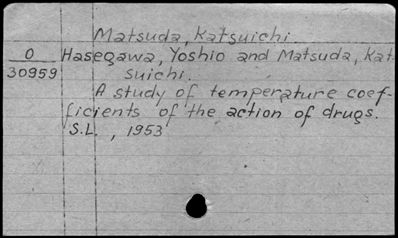 Matsuda, Katsuichi.
O Hasegawa, Yoshio and Matsuda, Kat-
30959 suichi.
A study of temperature coef-
ficients of the action of drugs.
S.L., 1953